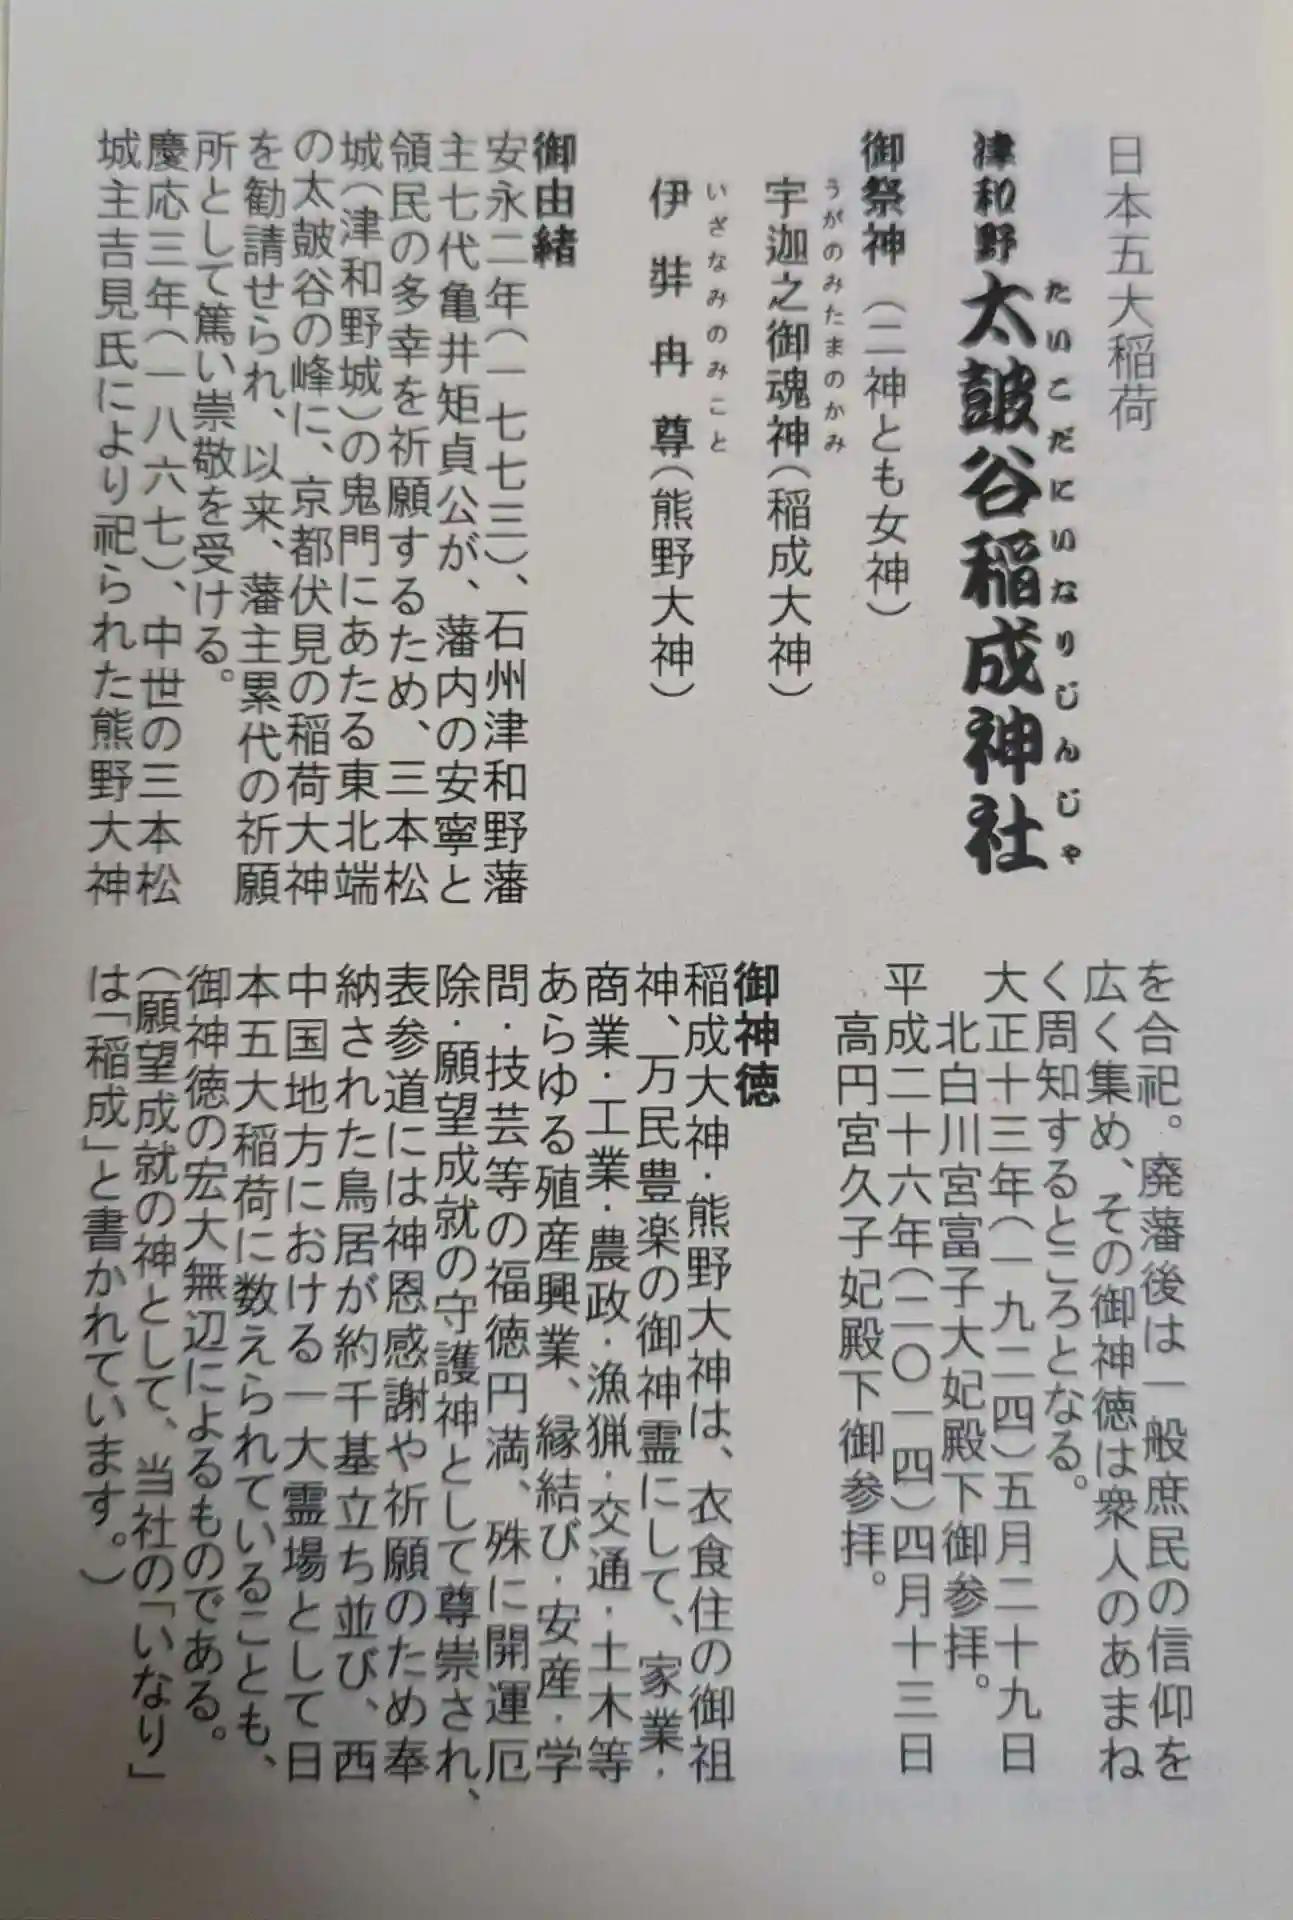 日本五大稲荷
津和野 太皷谷稲成神社
たいこだにいなりじんじゃ
御祭神(二神とも女神)
うがのみたまのかみ
宇迦之御魂神(稲成大神)
いざなみのみこと
伊弉冉尊(熊野大神)
御由緒
安永二年(一七七三)、石州津和野藩
主七代亀井矩貞公が、藩内の安寧と
領民の多幸を祈願するため、三本松
城(津和野城)の鬼門にあたる東北端
の太皷谷の峰に、京都伏見の稲荷大神
を勧請せられ、以来、藩主累代の祈願
所として篤い崇敬を受ける。
慶応三年(一八六七)、中世の三本松
城主吉見氏により祀られた熊野大神
を合祀。廃藩後は一般庶民の信仰を
広く集め、その御神徳は衆人のあまね
く周知するところとなる。
大正十三年(一九二四)五月二十九日
北白川宮富子大妃殿下御参拝。
平成二十六年(二〇一四)四月十三日
高円宮久子妃殿下御参拝。
御神徳
稲成大神・熊野大神は、衣食住の御祖
神、万民豊楽の御神霊にして、家業・
商業・工業・農政・漁猟・交通・土木等
あらゆる殖産興業、縁結び・安産・学
問・技芸等の福徳円満、殊に開運厄
除・願望成就の守護神として尊崇され、
表参道には神恩感謝や祈願のため奉
納された鳥居が約千基立ち並び、西
中国地方における一大霊場として日
本五大稲荷に数えられていることも、
御神徳の宏大無辺によるものである。
(願望成就の神として、当社の「いなり」
は「稲成」と書かれています。)